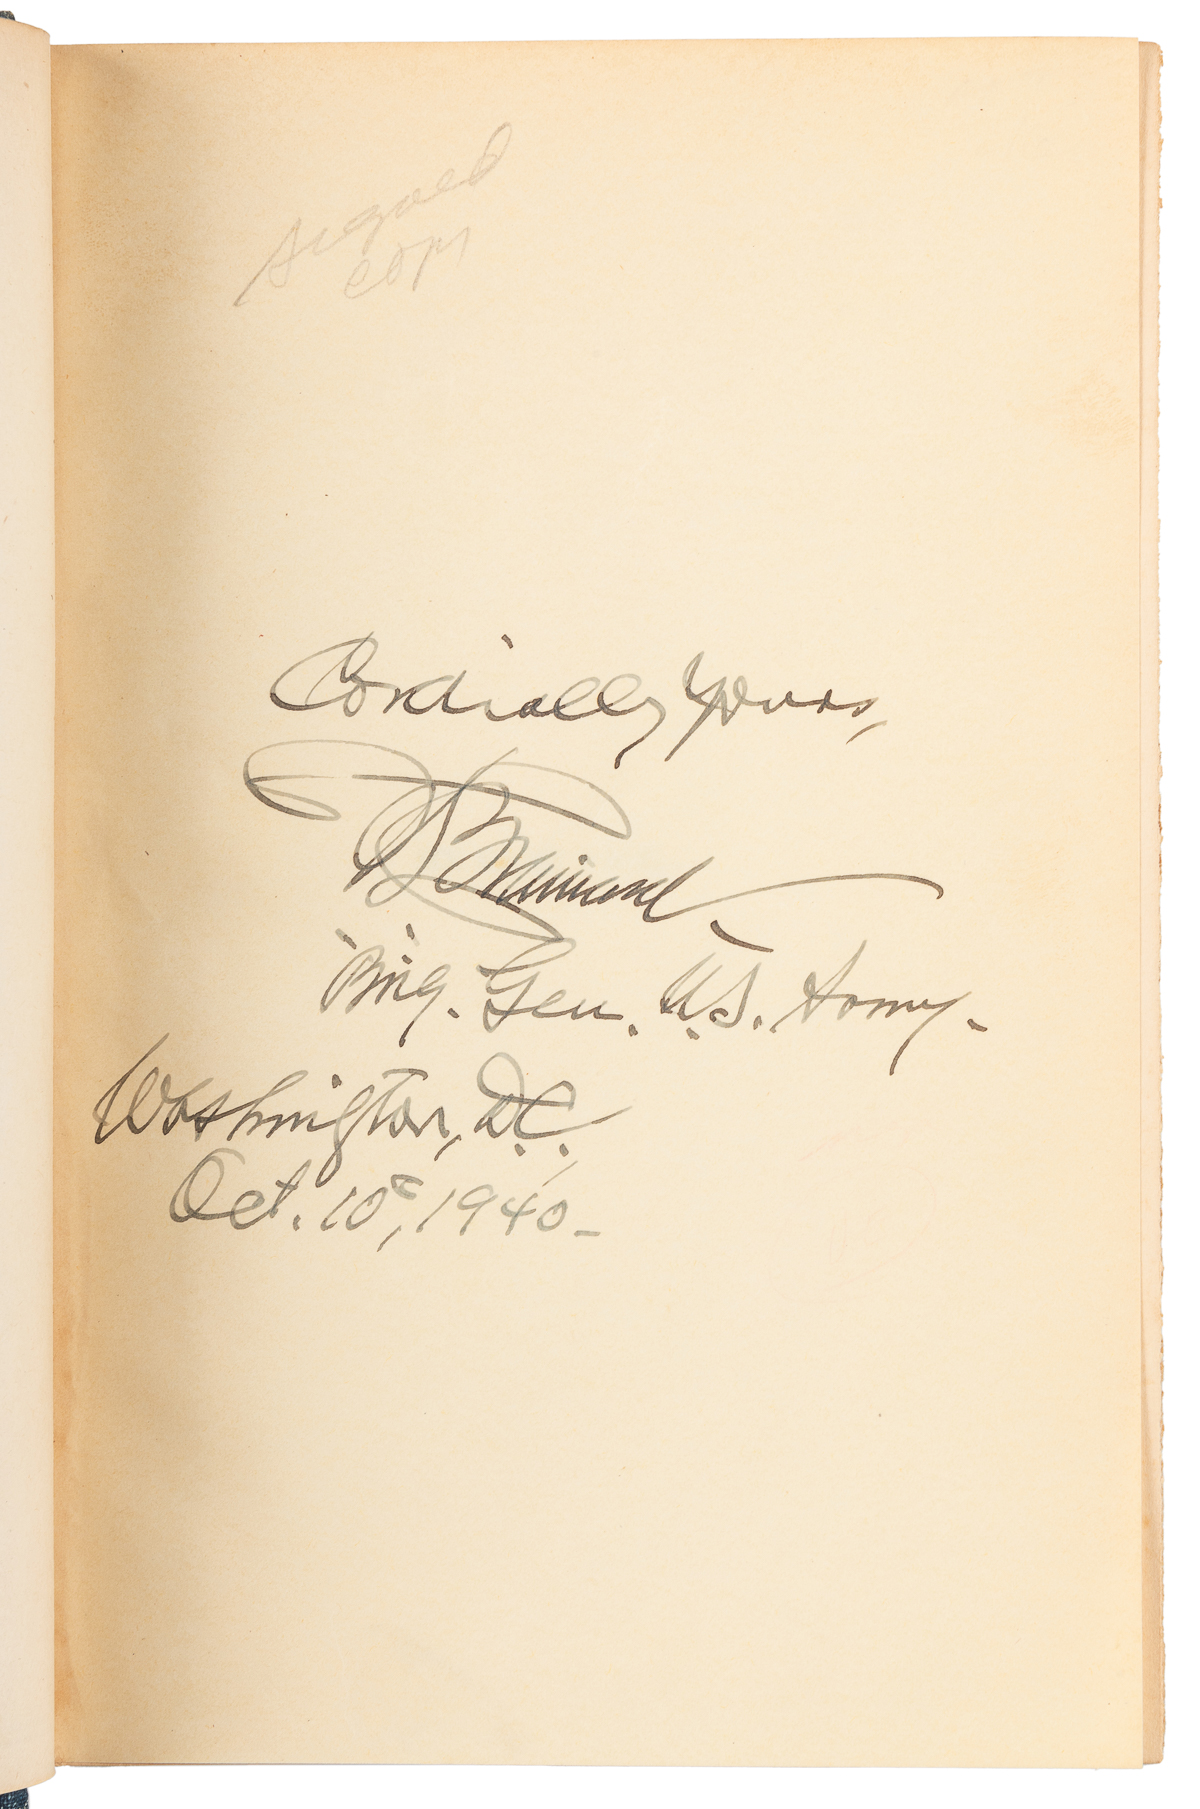 Signed
copy
Cordially Yours,
D L Brainard.
Brig. Gen. U.S. Army.
Washington, D.C.,
Oct. 10th, 1940-